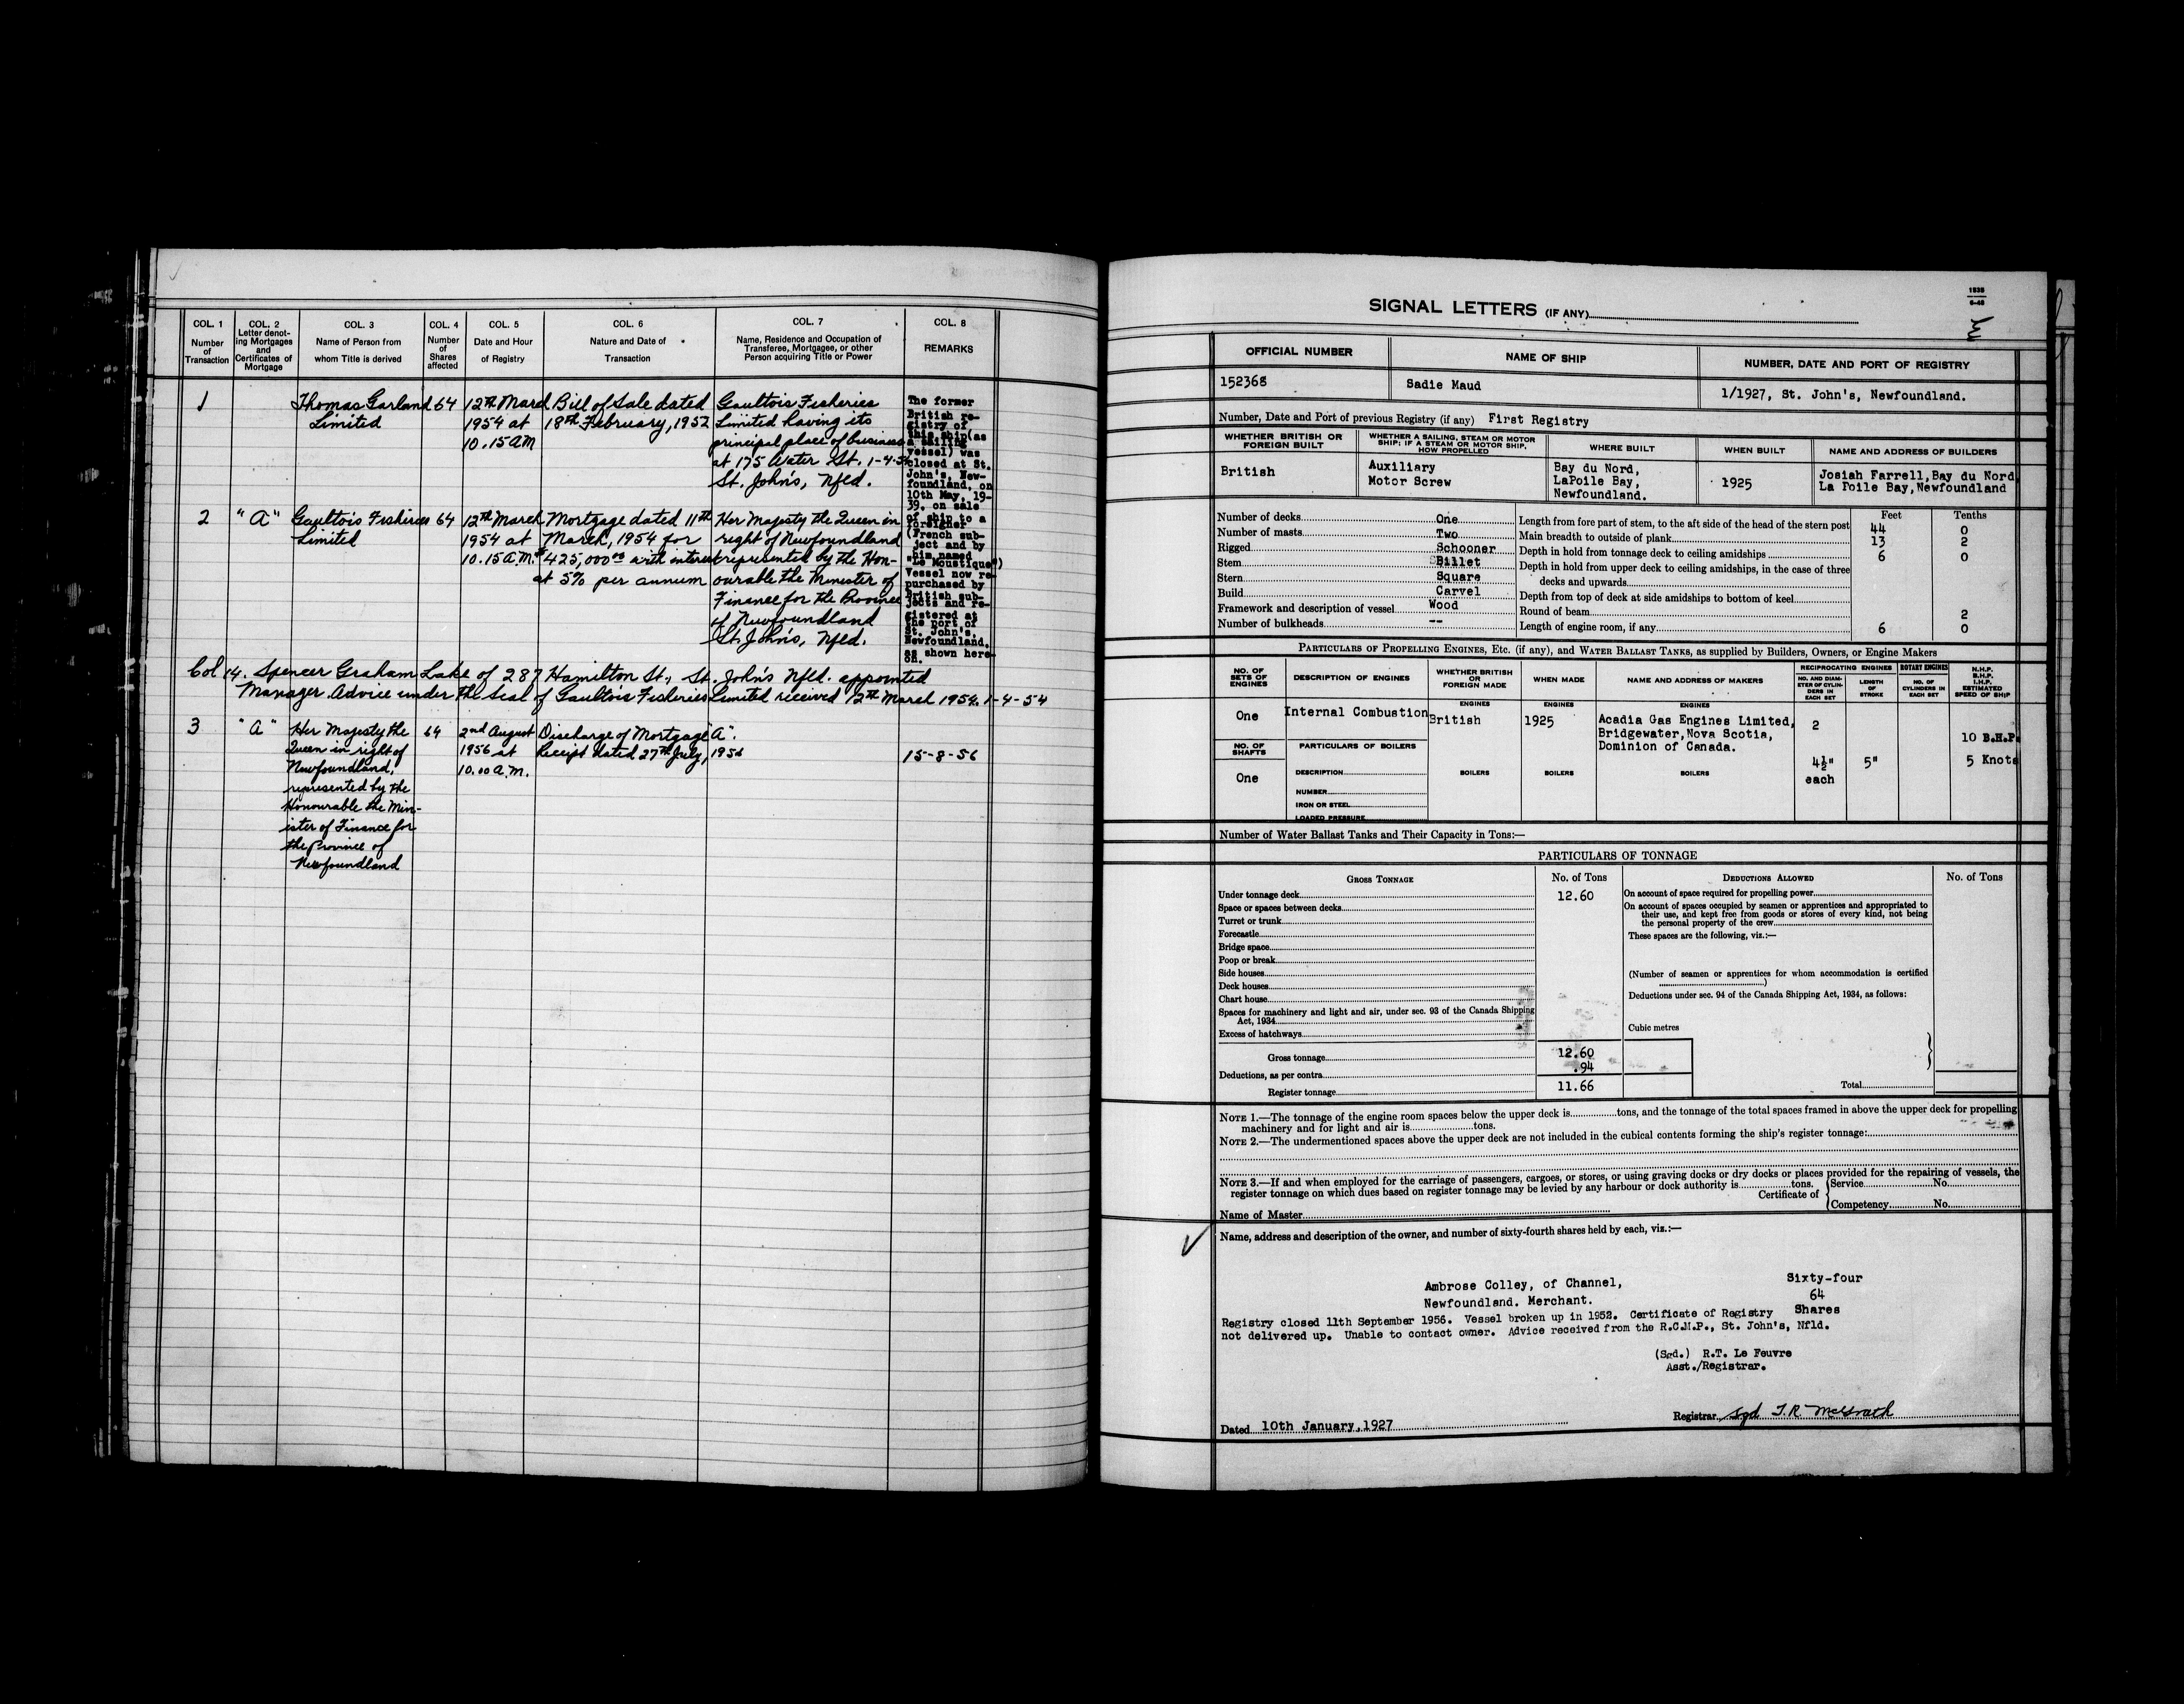 COL. 1
Number
of
Transaction
COL. 2
Letter denot-
ing Mortgages
and
Certificates of
Mortgage
COL. 3
Name of Person from
whom Title is derived
COL. 4
Number
of
Shares
affected
COL. 5
Date and Hour
of Registry
COL. 6
Nature and Date of
Transaction
COL. 7
Name, Residence and Occupation of
Transferee, Mortgagee, or other
Person acquiring Title or Power
COL. 8
REMARKS
1
Thomas Garland
Limited
64
12th March
1954 at
10.15 AM
Bill of Sale dated
18th February, 1952
Gaultois Fisheries
Limited having its
principal place of business
at 175 Water St. 1-4-54
St. John's, Nfld.
The former
British re-
gistry of
this ship(as
a sailing
vessel) was
closed at St.
John's, New-
foundland, on
10th May, 19-
39, on sale
of ship to a
foreigner
(French sub-
ject and by
him named
"Le Moustique")
Vessel now re-
purchased by
British sub-
jects and re-
gistered at
the port of
St. John's,
Newfoundland.
as shown here-
on.
2
"A"
Gaultois Fisheries
Limited
64
12th March
1954 at
10.15 A.M.
Mortgage dated 11th
March, 1954 for
$425,000.00 with interest
at 5% per annum
Her Majesty the Queen in
right of Newfoundland
represented by the Hon-
ourable the Minister of
Finance for the Province
of Newfoundland
St. John's, Nfld.
Col 14. Spencer Graham Lake of 287 Hamilton St., St. John's Nfld. appointed
Manager. Advice under the Seal of Gaultois Fisheries Limited received 12th March 1954. 1-4-54
3
"A"
Her Majesty the
Queen in right of
Newfoundland,
represented by the
Honourable the Min-
ister of Finance for
the Province of
Newfoundland
64
2nd August
1956 at
10.00 A.M.
Discharge of Mortgage "A".
Receipt dated 27th July, 1956
15-8-56
1835
6-48
SIGNAL LETTERS (IF ANY)
OFFICIAL NUMBER
NAME OF SHIP
NUMBER, DATE AND PORT OF REGISTRY
152368
Sadie Maud
1/1927, St. John's, Newfoundland.
Number, Date and Port of previous Registry (if any) First Registry
WHETHER BRITISH OR
FOREIGN BUILT
WHETHER A SAILING, STEAM OR MOTOR
SHIP; IF A STEAM OR MOTOR SHIP,
HOW PROPELLED
WHERE BUILT
WHEN BUILT
NAME AND ADDRESS OF BUILDERS
British
Auxiliary
Motor Screw
Bay du Nord,
LaPoile Bay,
Newfoundland.
1925
Josiah Farrell,Bay du Nord,
La Poile Bay,Newfoundland
Number of decks One
Number of masts Two
Rigged Schooner
Stem Billet
Stern Square
Build Carvel
Framework and description of vessel Wood
Number of bulkheads --
Feet Tenths
Length from fore part of stem, to the aft side of the head of the stern post 44 0
Main breadth to outside of plank 13 2
Depth in hold from tonnage deck to ceiling amidships 6 0
Depth in hold from upper deck to ceiling amidships, in the case of three
decks and upwards
Depth from top of deck at side amidships to bottom of keel
Round of beam 2
Length of engine room, if any 6 0
PARTICULARS OF PROPELLING ENGINES, ETC. (if any), and WATER BALLAST TANKS, as supplied by Builders, Owners, or Engine Makers
NO. OF
SETS OF
ENGINES
DESCRIPTION OF ENGINES
WHETHER BRITISH
OR
FOREIGN MADE
WHEN MADE
NAME AND ADDRESS OF MAKERS
RECIPROCATING ENGINES
NO. AND DIAM-
ETER OF CYLIN-
DERS IN
EACH SET
LENGTH
OF
STROKE
ROTARY ENGINES
NO. OF
CYLINDERS IN
EACH SET
N.H.P.
B.H.P.
I.H.P.
ESTIMATED
SPEED OF SHIP
One
Internal Combustion
ENGINES
British
ENGINES
1925
ENGINES
Acadia Gas Engines Limited,
Bridgewater,Nova Scotia,
Dominion of Canada.
2
4½"
each
5"
10 B.H.P.
5 Knots
NO. OF
SHAFTS
One
PARTICULARS OF BOILERS
DESCRIPTION
NUMBER
IRON OR STEEL
LOADED PRESSURE
BOILERS
BOILERS
BOILERS
Number of Water Ballast Tanks and Their Capacity in Tons:—
PARTICULARS OF TONNAGE
GROSS TONNAGE
No. of Tons
Under tonnage deck 12.60
Space or spaces between decks
Turret or trunk
Forecastle
Bridge space
Poop or break
Side houses
Deck houses
Chart house
Spaces for machinery and light and air, under sec. 93 of the Canada Shipping
Act, 1934
Excess of hatchways
Gross tonnage 12.60
Deductions, as per contra .94
Register tonnage 11.66
DEDUCTIONS ALLOWED
No. of Tons
On account of space required for propelling power
On account of spaces occupied by seamen or apprentices and appropriated to
their use, and kept free from goods or stores of every kind, not being
the personal property of the crew
These spaces are the following, viz.:—
(Number of seamen or apprentices for whom accommodation is certified
)
Deductions under sec. 94 of the Canada Shipping Act, 1934, as follows:
Cubic metres
Total
NOTE 1.—The tonnage of the engine room spaces below the upper deck is tons, and the tonnage of the total spaces framed in above the upper deck for propelling
machinery and for light and air is tons.
NOTE 2.—The undermentioned spaces above the upper deck are not included in the cubical contents forming the ship's register tonnage:
NOTE 3.—If and when employed for the carriage of passengers, cargoes, or stores, or using graving docks or dry docks or places provided for the repairing of vessels, the
register tonnage on which dues based on register tonnage may be levied by any harbour or dock authority is tons.
Certificate of
Service No.
Competency No.
Name of Master
Name, address and description of the owner, and number of sixty-fourth shares held by each, viz.:—
Ambrose Colley, of Channel,
Newfoundland. Merchant.
Sixty-four
64
Shares
Registry closed 11th September 1956. Vessel broken up in 1952. Certificate of Registry
not delivered up. Unable to contact owner. Advice received from the R.C.M.P., St. John's, Nfld.
(Sgd.) R.T. Le Feuvre
Asst./Registrar.
Dated 10th January,1927
Registrar sgd T.R. McGrath